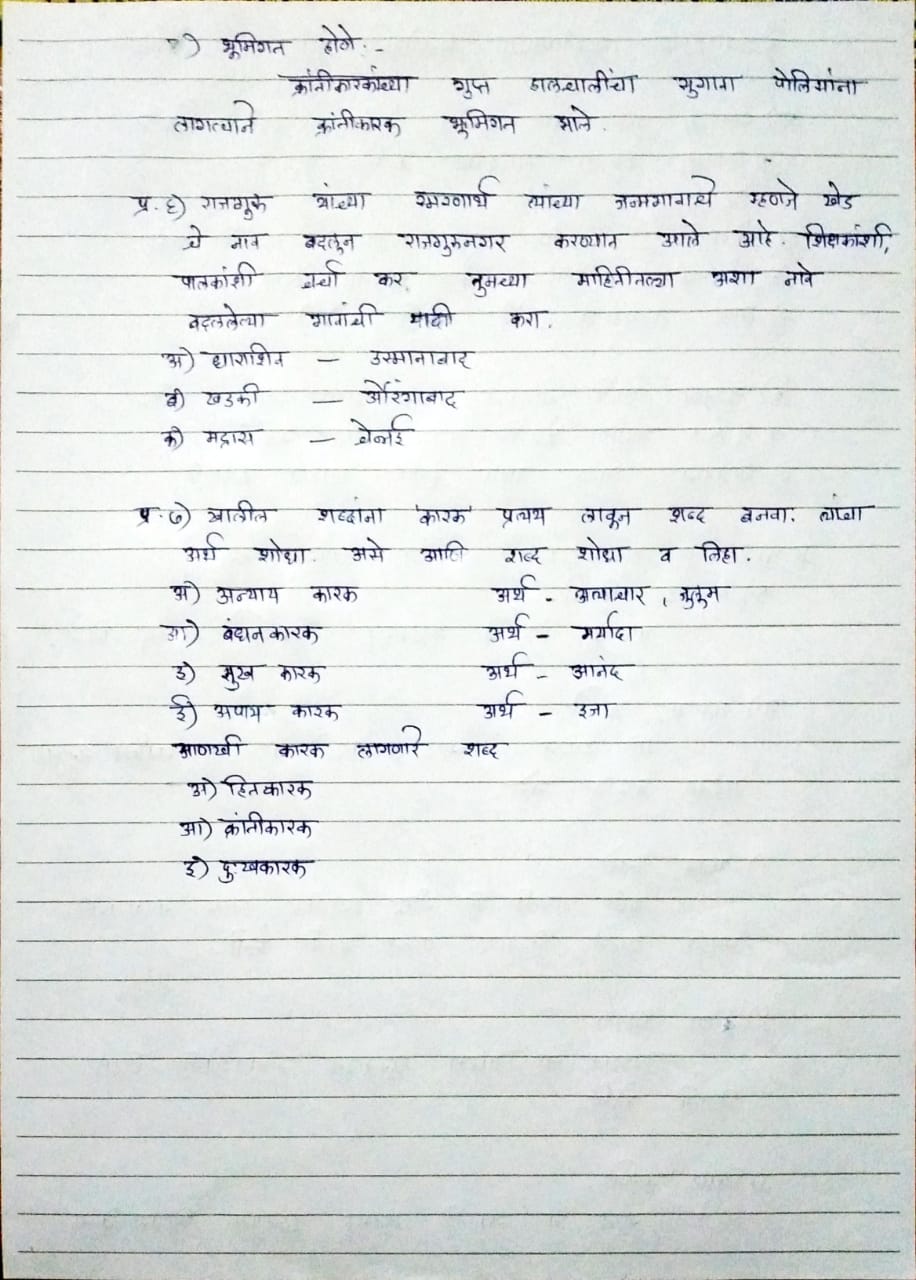 २) भूमिगत होणे :-
क्रांतीकारकांच्या गुप्त हालचालींचा सुगावा पोलिसांना
लागल्याने क्रांतीकारक भूमिगत झाले.
प्र. ६) राजगुरू यांच्या स्मरणार्थ त्यांच्या जन्मगावाचे म्हणजे खेड
चे नाव बदलून राजगुरुनगर करण्यात आले आहे. शिक्षकांशी,
पालकांशी चर्चा कर. तुमच्या माहितीतल्या अशा नावे
बदललेल्या गावांची यादी करा.
अ) धाराशिव – उस्मानाबाद
ब) खडकी – औरंगाबाद
क) मद्रास – चेन्नई
प्र. ७) खालील शब्दांना 'कारक' प्रत्यय लावून शब्द बनवा. त्यांचा
अर्थ शोधा. असे आणि शब्द शोधा व लिहा.
अ) अन्याय कारक अर्थ - अत्याचार, जुलूम
आ) बंधनकारक अर्थ - मर्यादा
इ) सुख कारक अर्थ - आनंद
ई) अपाय कारक अर्थ - इजा
आणखी कारक लागणारे शब्द
अ) हितकारक
आ) क्रांतीकारक
इ) दुःखकारक